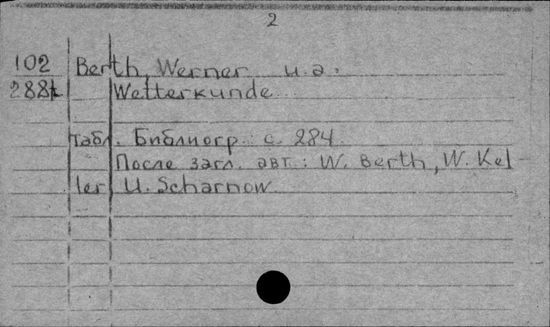 2
102 Berth, Werner u.a.
288 Wetterkunde
табл. Библиогр.: с. 284.
После загл. авт.: W. Berth, W. Kel
ler U. Scharnow